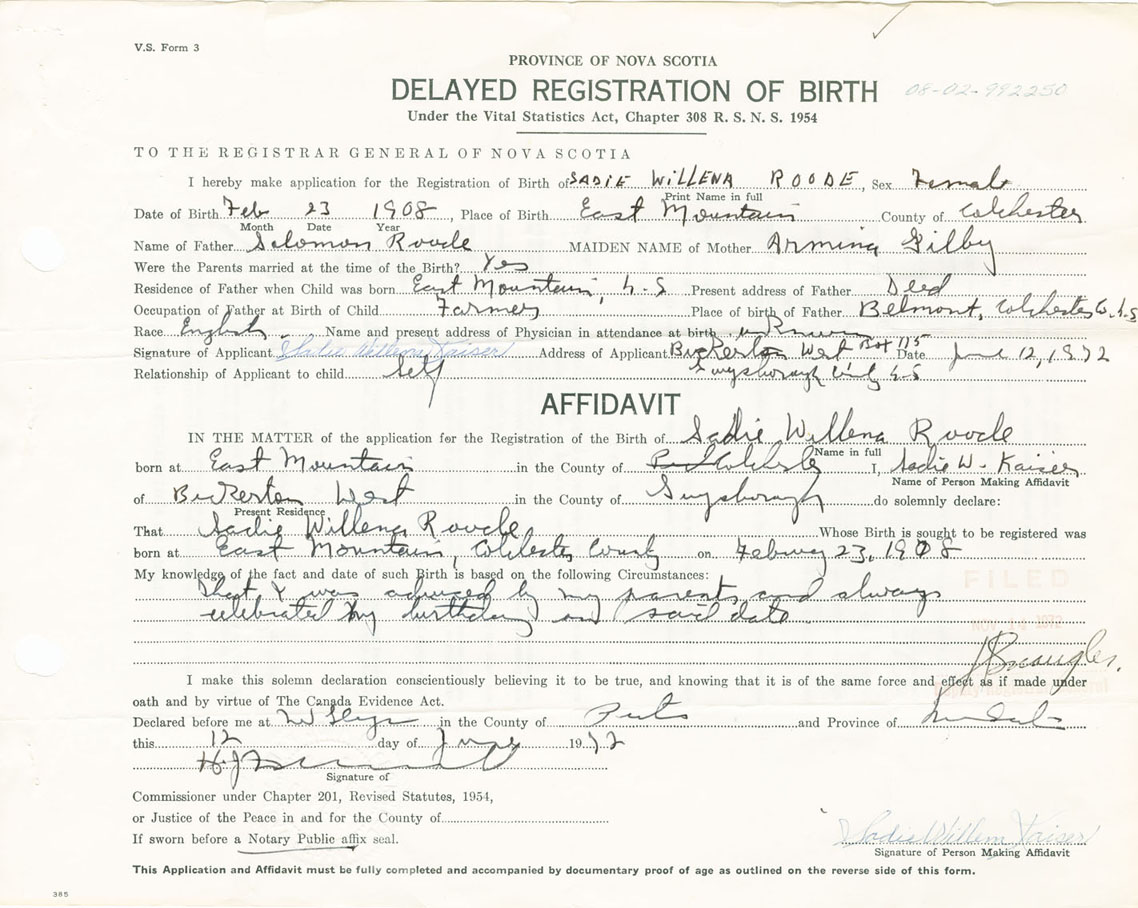 V.S. Form 3
PROVINCE OF NOVA SCOTIA
DELAYED REGISTRATION OF BIRTH 08-02-992250
Under the Vital Statistics Act, Chapter 308 R. S. N. S. 1954
TO THE REGISTRAR GENERAL OF NOVA SCOTIA
I hereby make application for the Registration of Birth of SADIE WILLENA ROODE, Sex Female
Print Name in full
Date of Birth Feb 23 1908, Place of Birth East Mountain County of Colchester
Month Date Year
Name of Father Solomon Roode MAIDEN NAME of Mother Armina Gilby
Were the Parents married at the time of the Birth? Yes
Residence of Father when Child was born East Mountain, N.S Present address of Father Deed
Occupation of Father at Birth of Child Farmer Place of birth of Father Belmont, Colchester Co. N.S
Race English Name and present address of Physician in attendance at birth unknown
Signature of Applicant Sadie Willena Kaiser Address of Applicant Bickerton West Box 115 Date June 12, 1972
Relationship of Applicant to child Self Guysborough N.S
AFFIDAVIT
IN THE MATTER of the application for the Registration of the Birth of Sadie Willena Roode
Name in full
born at East Mountain in the County of Colchester I, Sadie W. Kaiser
Name of Person Making Affidavit
of Bickerton West in the County of Guysborough do solemnly declare:
Present Residence
That Sadie Willena Roode Whose Birth is sought to be registered was
born at East Mountain, Colchester County on Febuary 23, 1908
My knowledge of the fact and date of such Birth is based on the following Circumstances:
That I was advised by my parents and always
celebrated my birthday on said date
FILED
NOV 14 1972
Deputy Registrar General
I make this solemn declaration conscientiously believing it to be true, and knowing that it is of the same force and effect as if made under
oath and by virtue of The Canada Evidence Act.
Declared before me at in the County of Pictou and Province of
this 12 day of June 1972
Signature of
Commissioner under Chapter 201, Revised Statutes, 1954,
or Justice of the Peace in and for the County of
If sworn before a Notary Public affix seal.
Sadie Willena Kaiser
Signature of Person Making Affidavit
This Application and Affidavit must be fully completed and accompanied by documentary proof of age as outlined on the reverse side of this form.
385